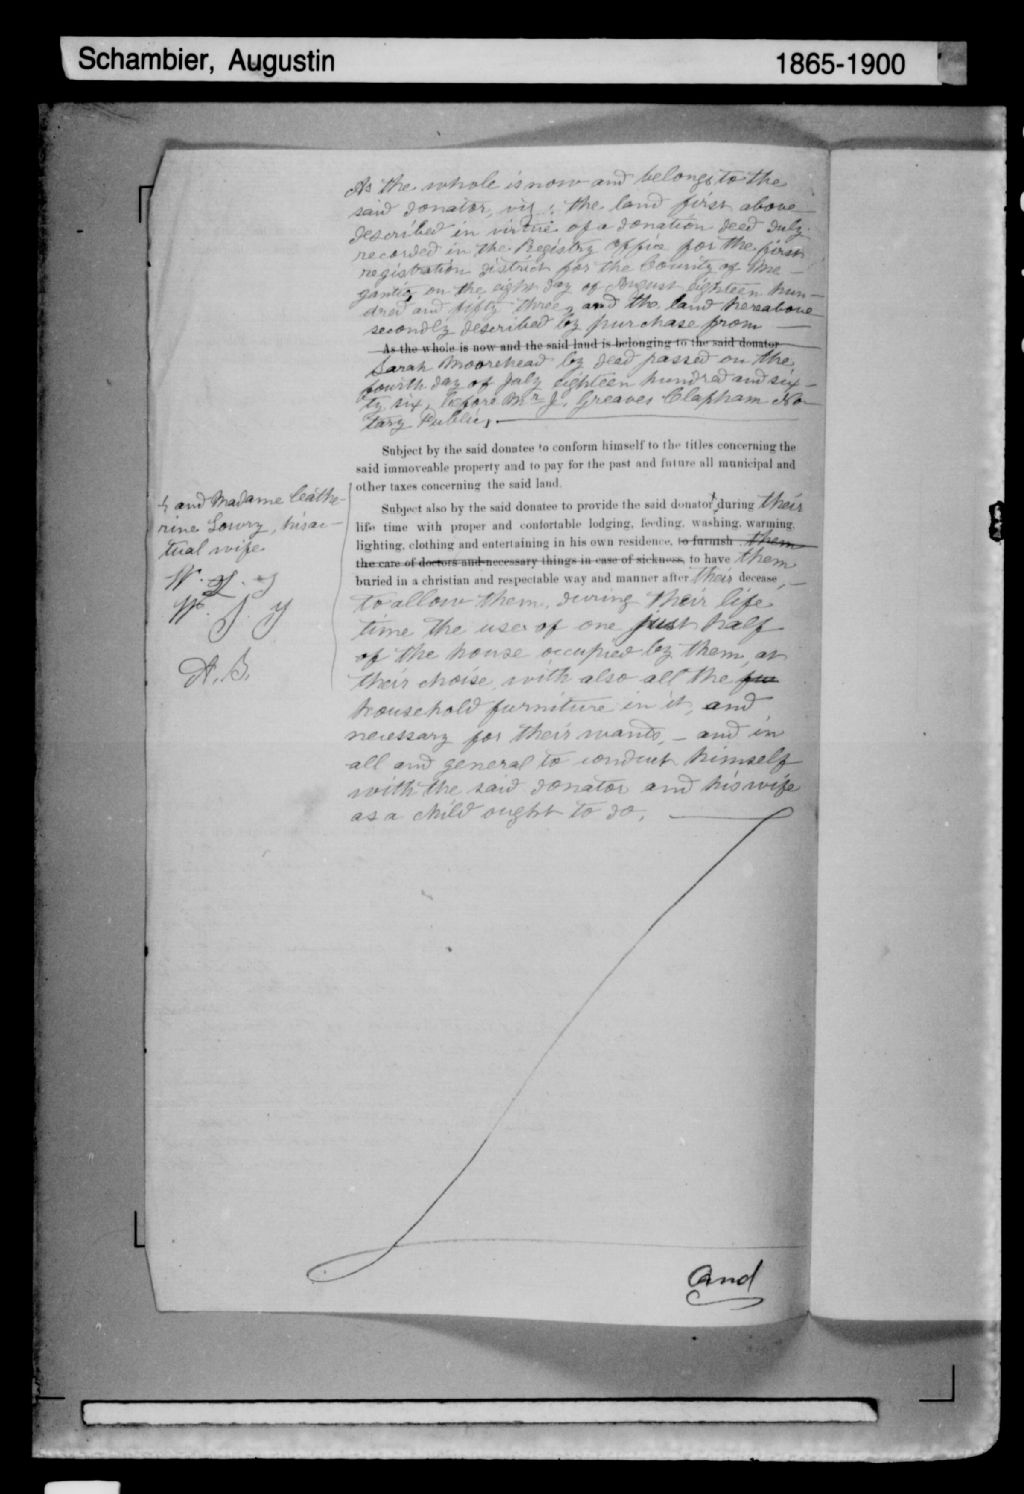 Schambier, Augustin
1865-1900
As the whole is now and belongs to the
said donator, viz: the land first above
described in virtue of a donation deed duly
recorded in the Registry Office for the first
registration district for the County of Me-
gantic, on the eight day of August eighteen hun-
dred and fifty three, and the land hereabove
secondly described by purchase from
As the whole is now and the said land is belonging to the said donator
Sarah Moorehead by deed passed on the
fourth day of July eighteen hundred and six-
ty six, before Mr J. Greaves Clapham No-
tary Public,
Subject by the said donatee to conform himself to the titles concerning the
said immoveable property and to pay for the past and future all municipal and
other taxes concerning the said land.
Subject also by the said donatee to provide the said donator during their
life time with proper and confortable lodging, feeding, washing, warming,
lighting, clothing and entertaining in his own residence, to furnish them
the care of doctors and necessary things in case of sickness, to have them
buried in a christian and respectable way and manner after their decease,
to allow them, during their life
time the use of one just half
of the house occupied by them, at
their choise, with also all the fur
household furniture in it, and
necessary for their wants, - and in
all and general to conduct himself
with the said donator and his wife
as a child ought to do.
and Madame Cathe-
rine Lowry, his ac-
tual wife
W. J. y
A. B.
And